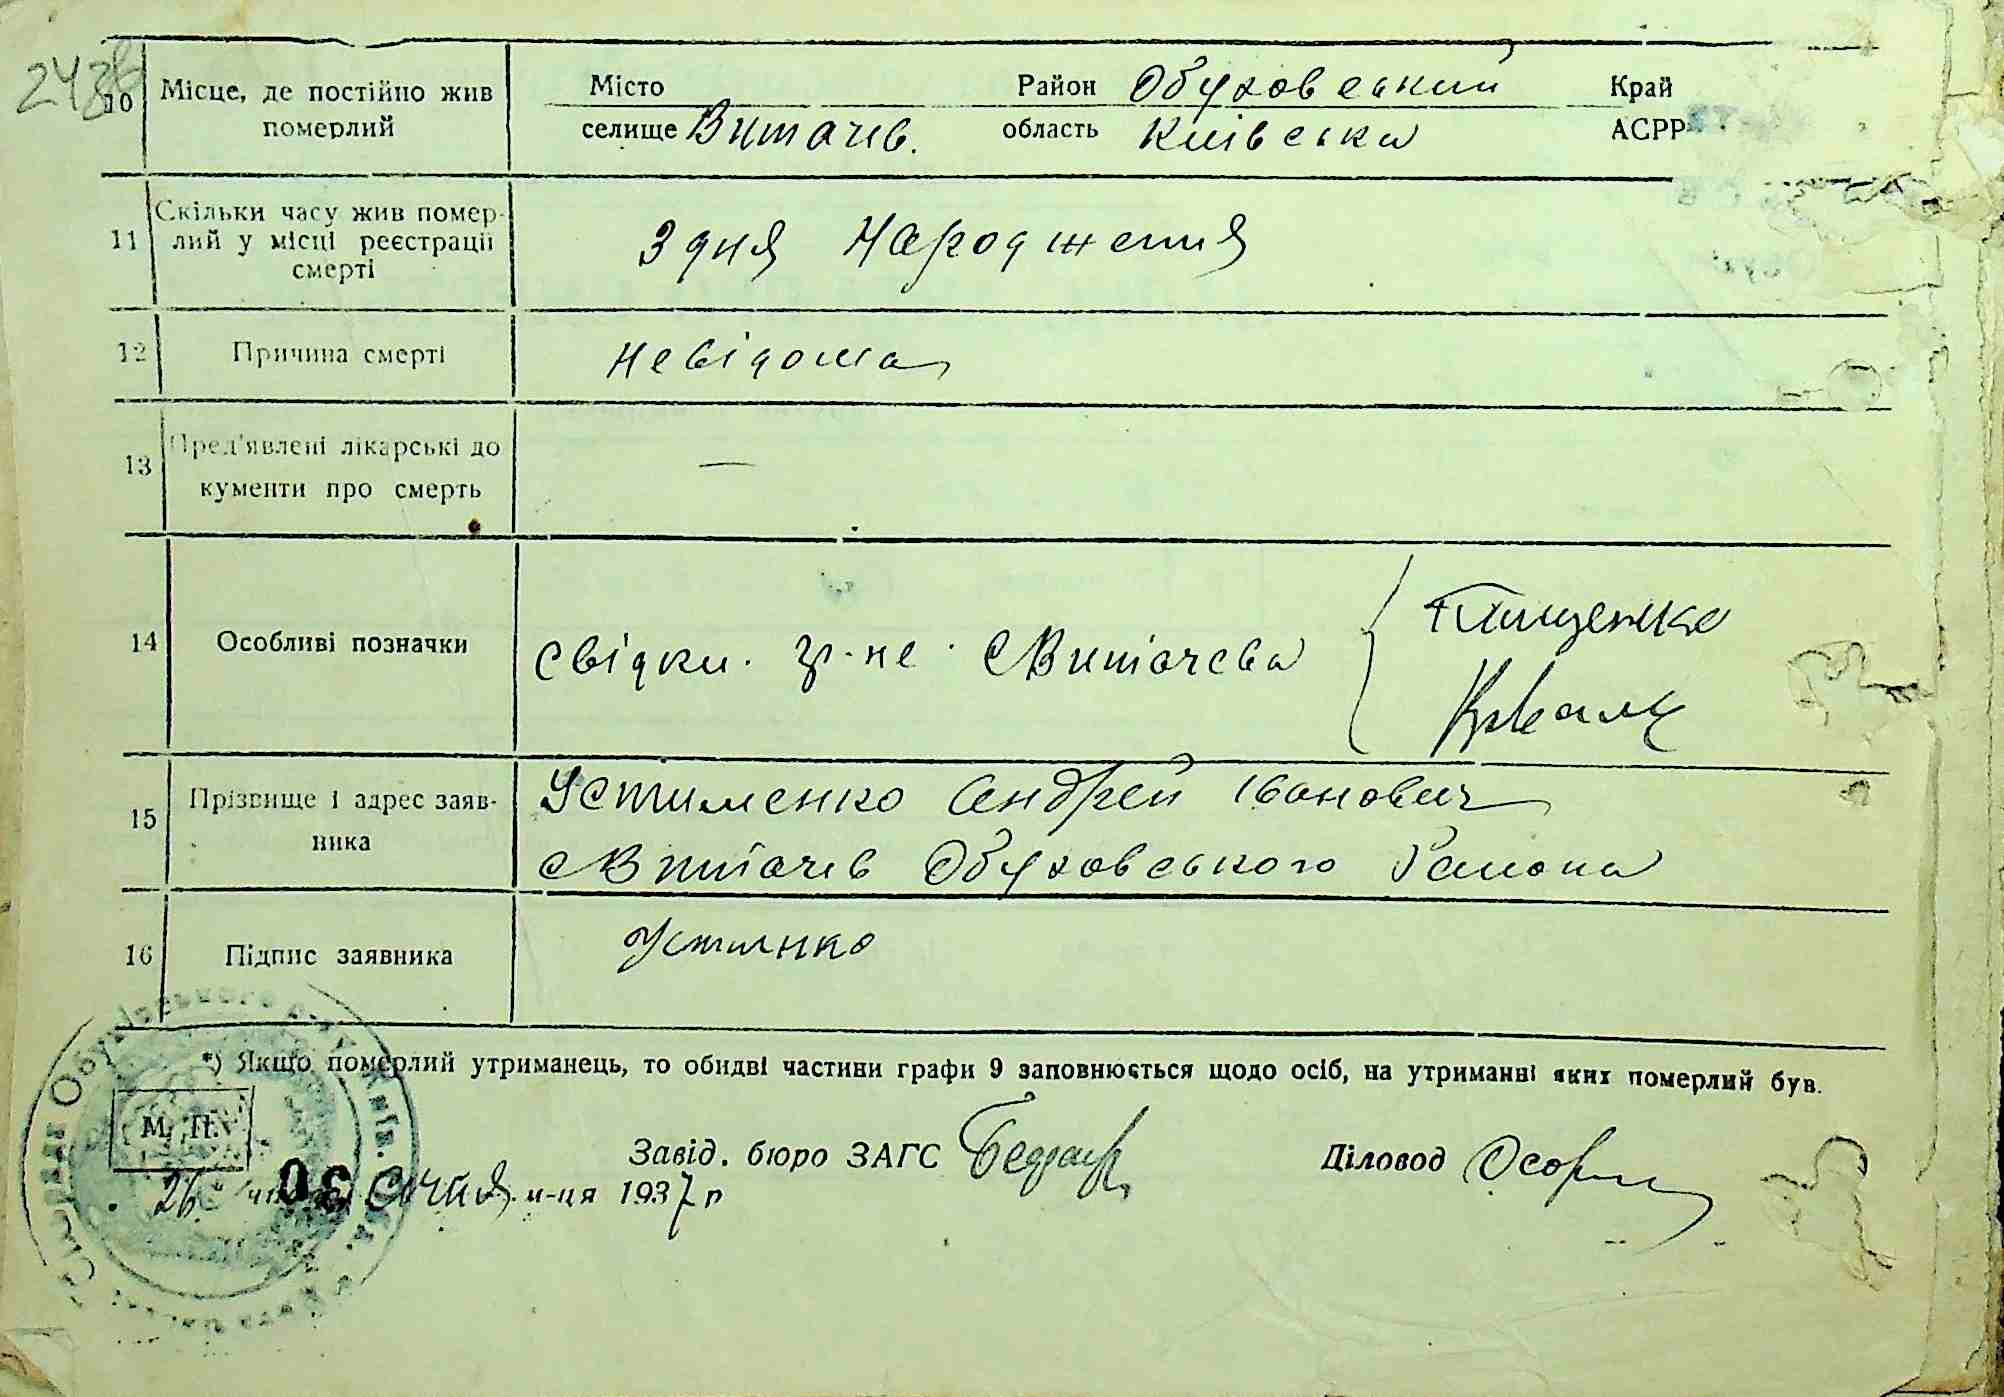 2438
10 Місце, де постійно жив померлий
Місто Район Обуховський Край
селище Витачів. область Київська АСРР
11 Скільки часу жив помер-
лий у місці реєстрації
смерті
З дня Народження
12 Причина смерті Невідома
13 Пред'явлені лікарські до
кументи про смерть —
14 Особливі позначки свідки. гр-не с Витачева Тищенко
Коваль
15 Прізвище і адрес заяв-
ника
Устименко Андрей Іванович
с Витачів Обуховського Района
16 Підпис заявника Устимнко
*) Якщо померлий утриманець, то обидві частини графи 9 заповнюється щодо осіб, на утриманні яких померлий був.
М. П.
Завід. бюро ЗАГС Діловод
26 Січня м-ця 1937 р